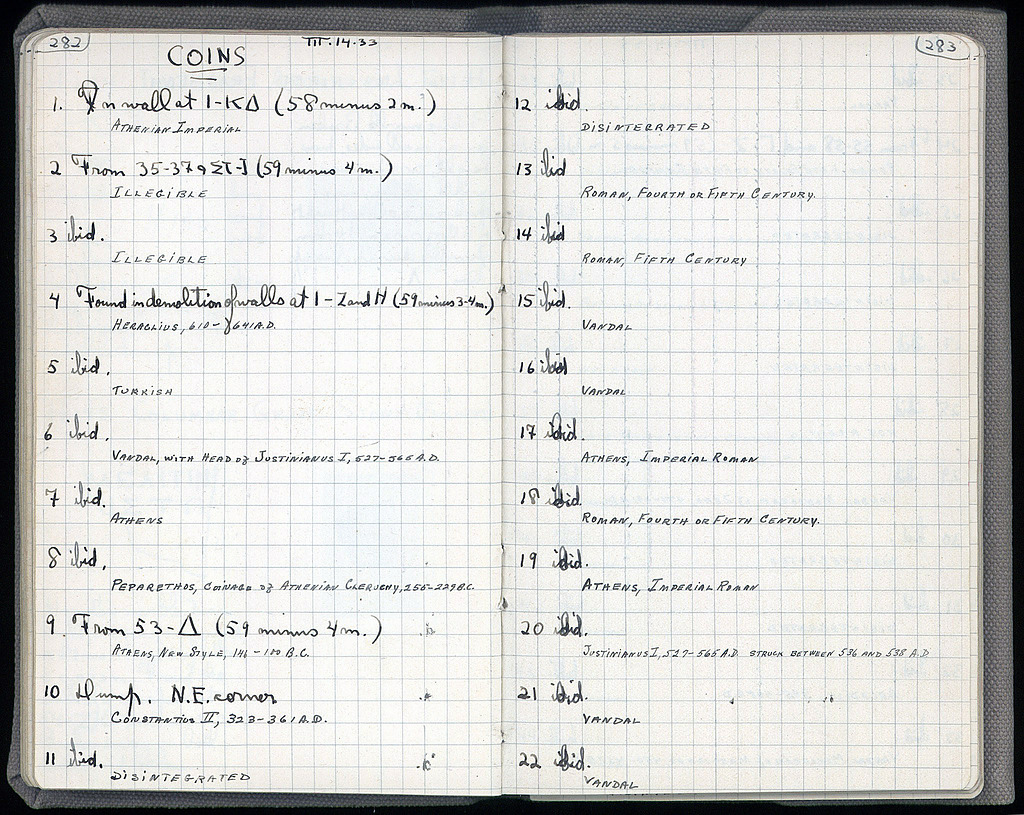 282
III.14.33
COINS
1. In wall at 1-ΚΔ (58 minus 2 m.)
ATHENIAN IMPERIAL
2 From 35-37 (59 minus 4 m.)
ILLEGIBLE
3 ibid.
ILLEGIBLE
4 Found in demolition of walls at 1-Z and H (59 minus 3-4 m.)
HERACLIUS, 610-641 A.D.
5 ibid.
TURKISH
6 ibid.
VANDAL, WITH HEAD OF JUSTINIANUS I, 527-565 A.D.
7 ibid.
ATHENS
8 ibid.
PEPARETHOS, COINAGE OF ATHENIAN CLERUCHY, B.C.
9 From 53-Δ (59 minus 4 m.)
ATHENS, NEW STYLE, 146-100 B.C.
10 Dump. N.E. corner
CONSTANTIUS II, 323-361 A.D.
11 ibid.
DISINTEGRATED
283
12 ibid.
DISINTEGRATED
13 ibid
ROMAN, FOURTH OR FIFTH CENTURY.
14 ibid
ROMAN, FIFTH CENTURY
15 ibid.
VANDAL
16 ibid
VANDAL
17 ibid.
ATHENS, IMPERIAL ROMAN
18 ibid
ROMAN, FOURTH OR FIFTH CENTURY.
19 ibid.
ATHENS, IMPERIAL ROMAN
20 ibid.
JUSTINIANUS I, 527-565 A.D. STRUCK BETWEEN 536 AND 538 A.D
21 ibid.
VANDAL
22 ibid.
VANDAL